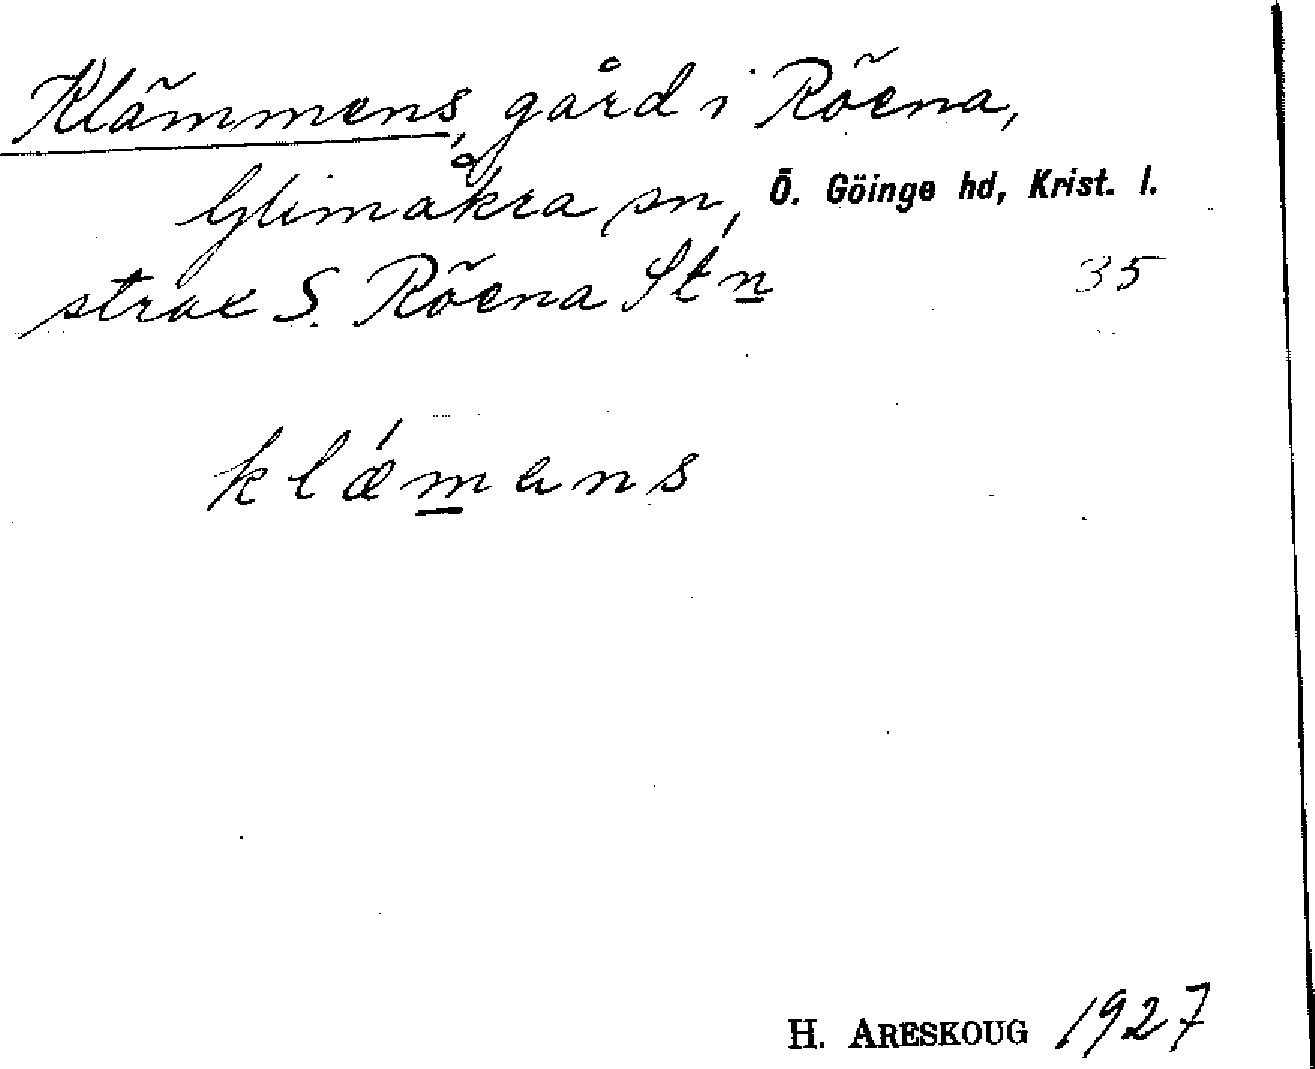 Klämmens, gård i Röena,
Glimåkra sn, Ö. Göinge hd, Krist. l.
strax S. Röena Stn 35
klǽmens
H. ARESKOUG 1927